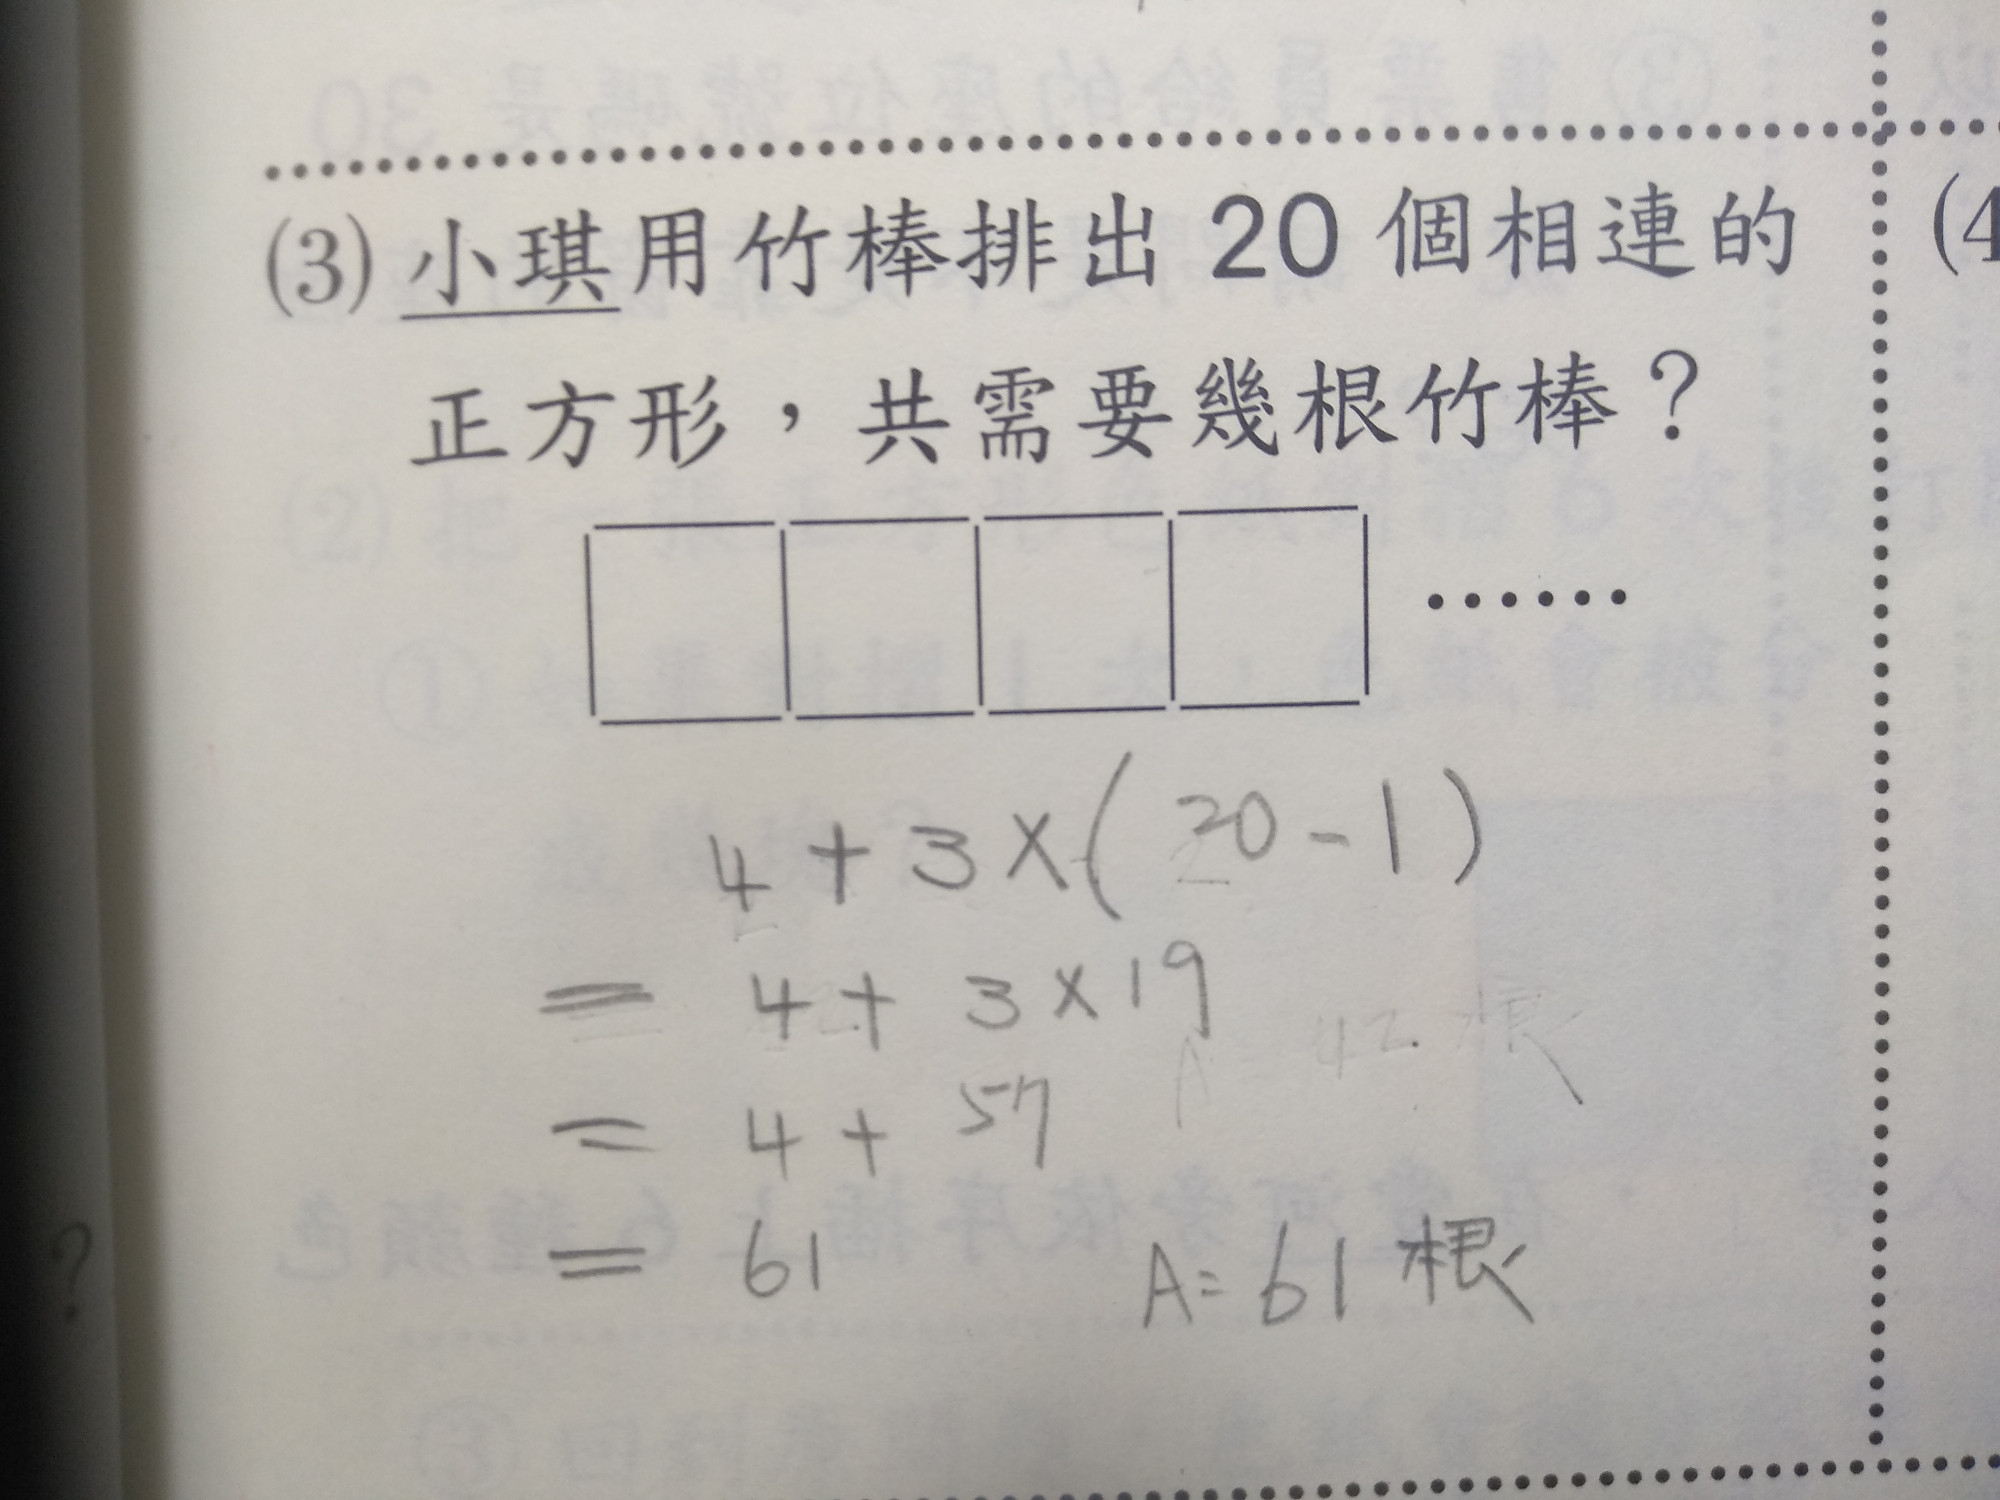 (3) 小琪用竹棒排出 20 個相連的
正方形，共需要幾根竹棒？
······
4 + 3 × ( 20 - 1 )
= 4 + 3 × 19
= 4 + 57
= 61 A = 61 根
(4
?